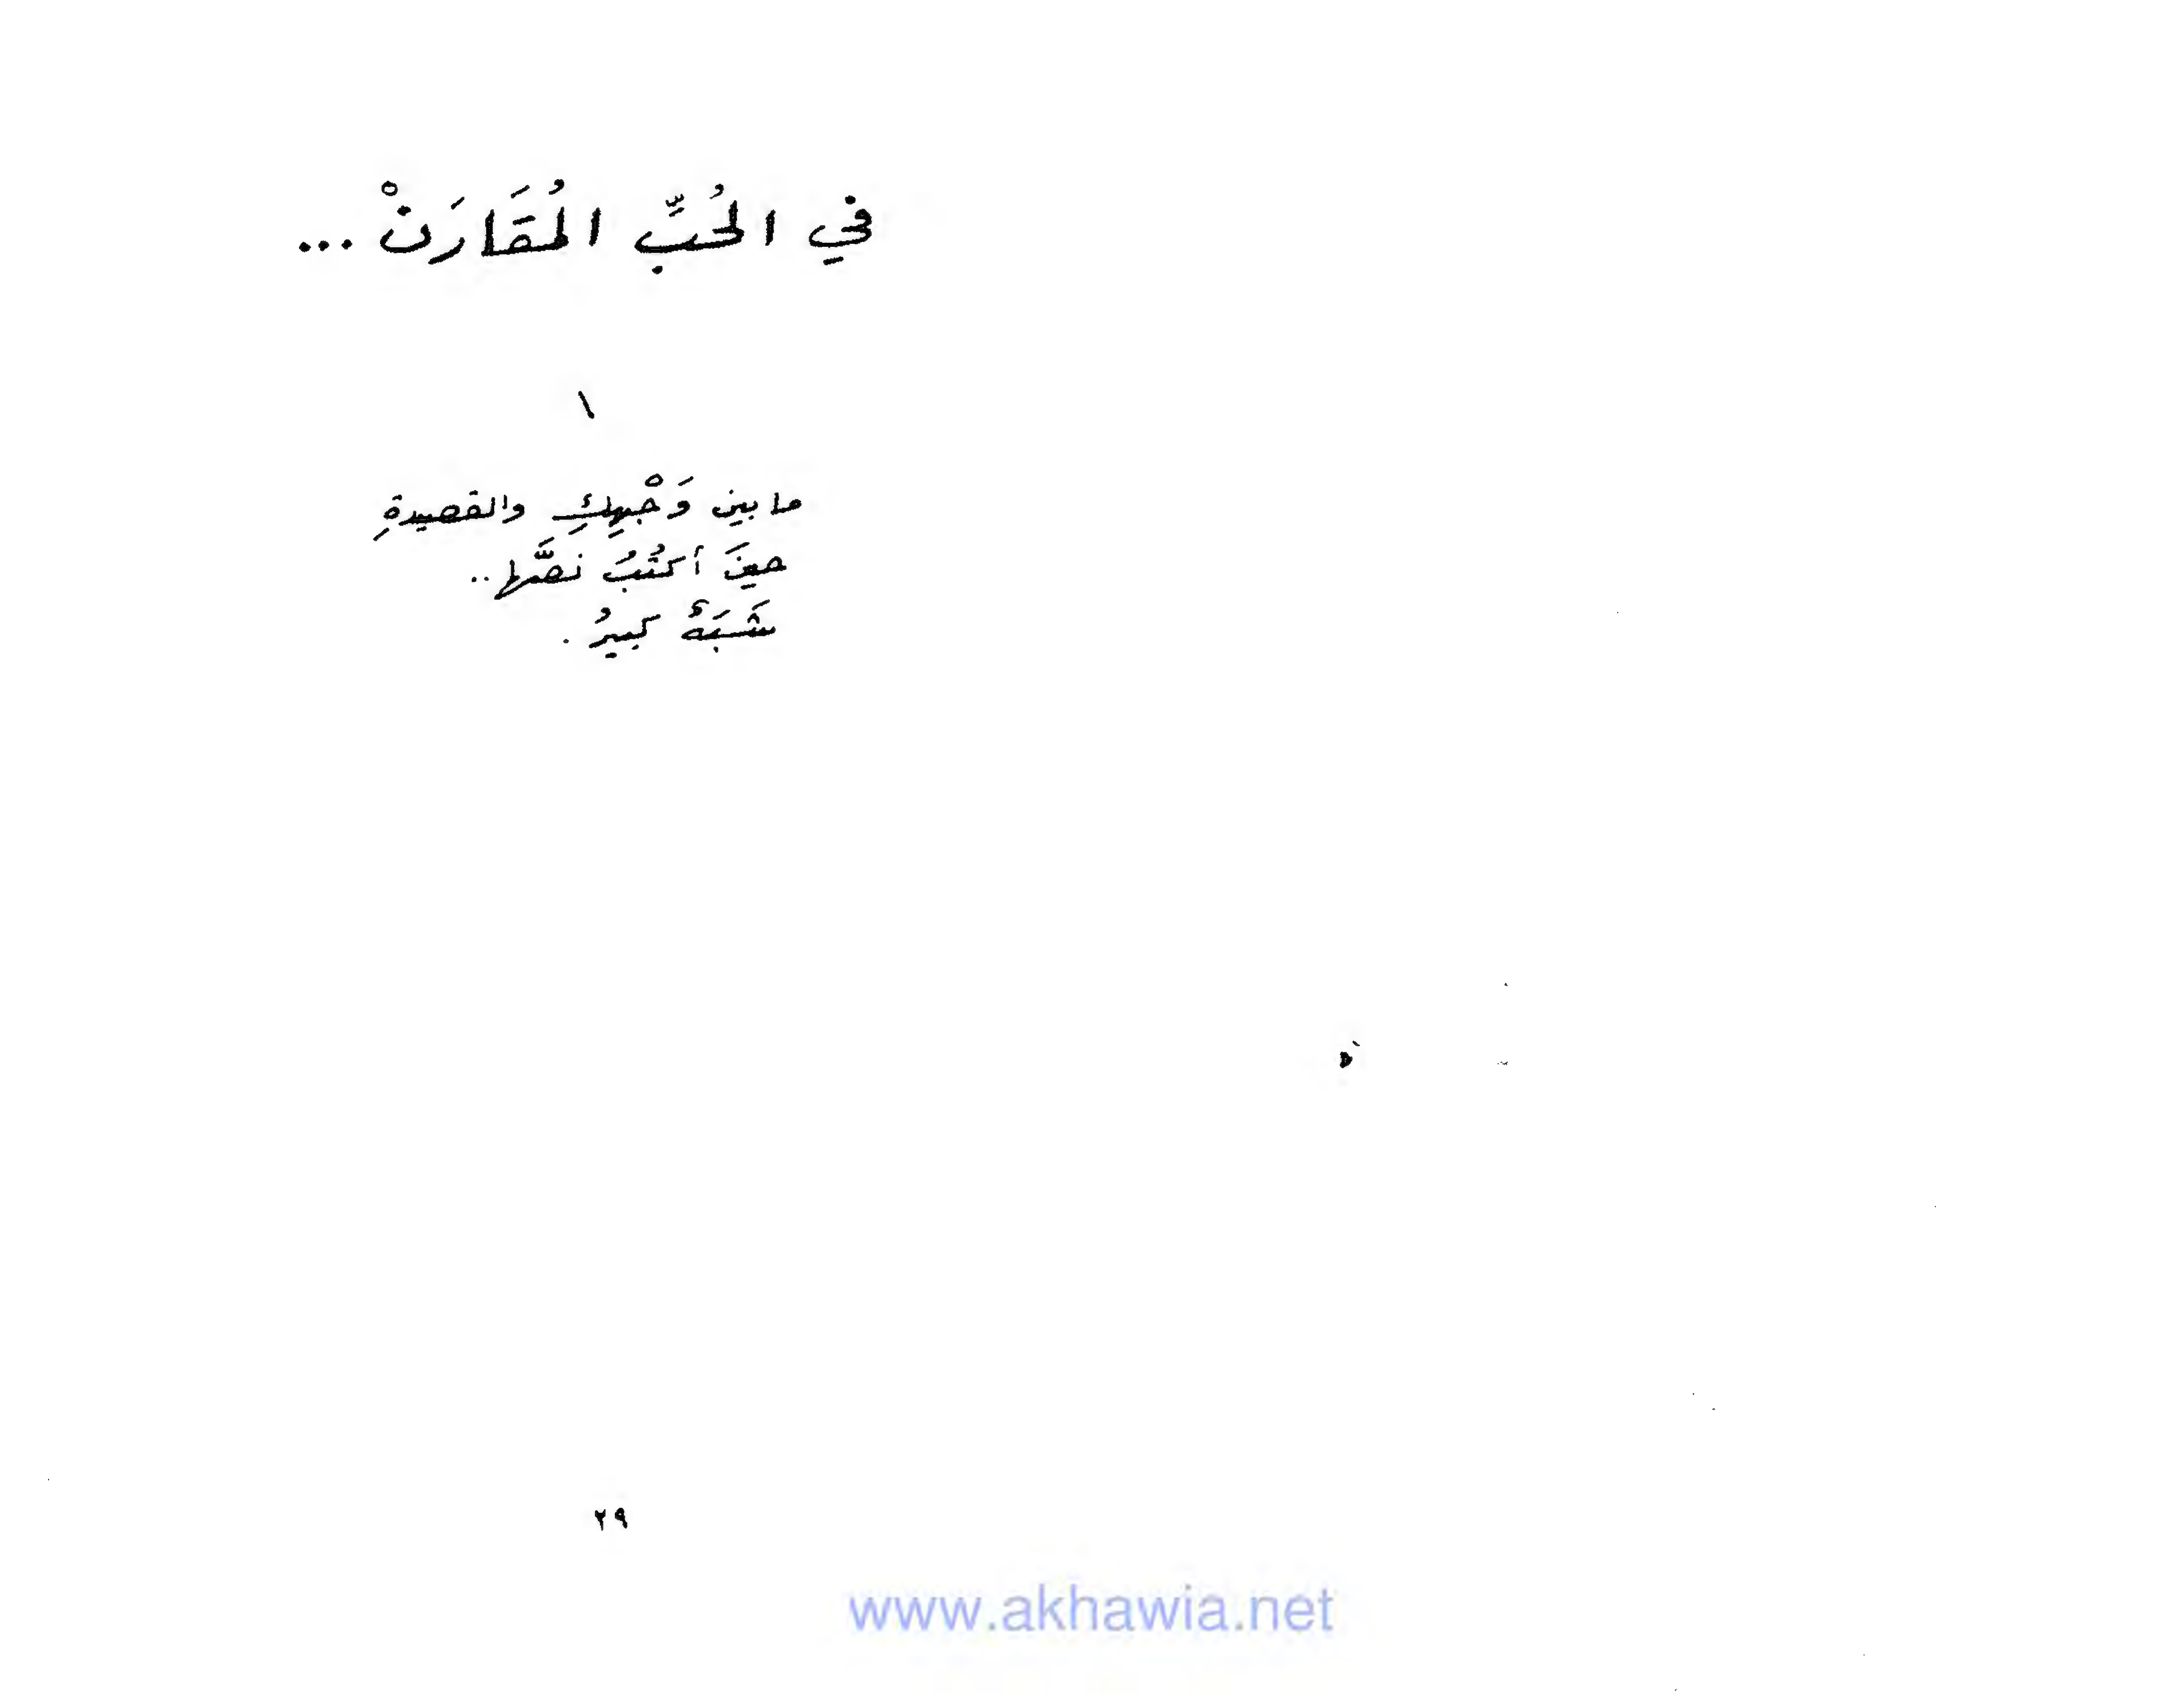 في الحُبِّ المُقَارَنْ ...
١
ما بين وَجْهِكِ والقصيدةِ
حينَ أكتُبُ نَصَّها ..
شَبَهٌ كبيرُ .
٢٩
www.akhawia.net